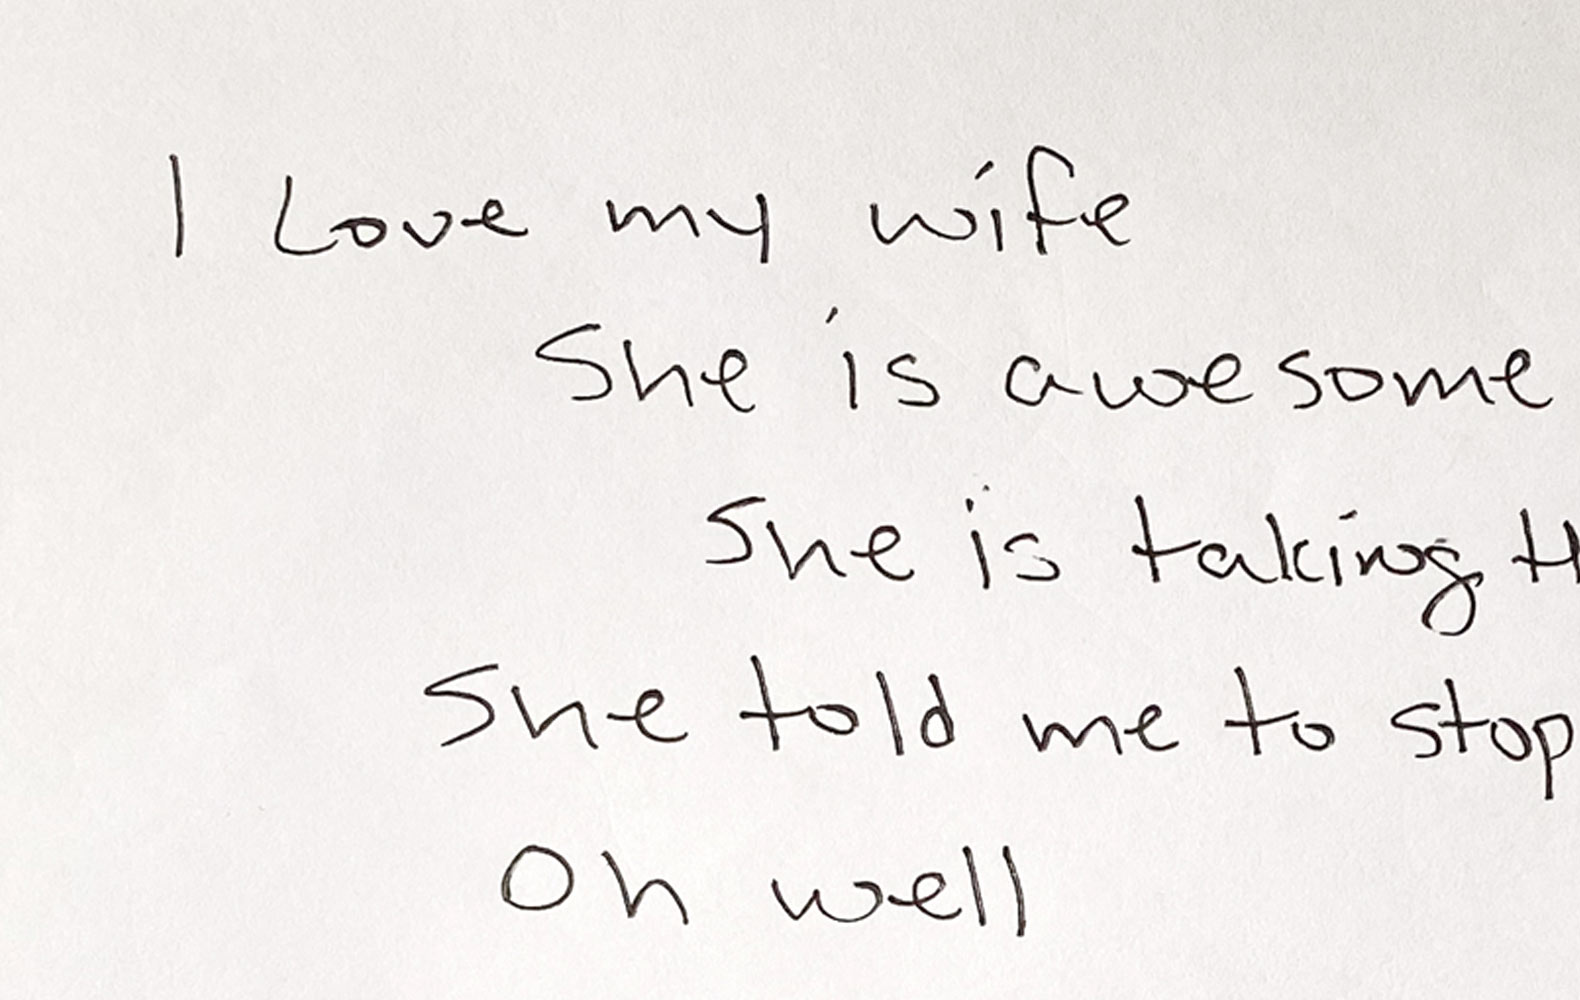 I Love my wife
She is awesome
She is taking
She told me to stop
Oh well